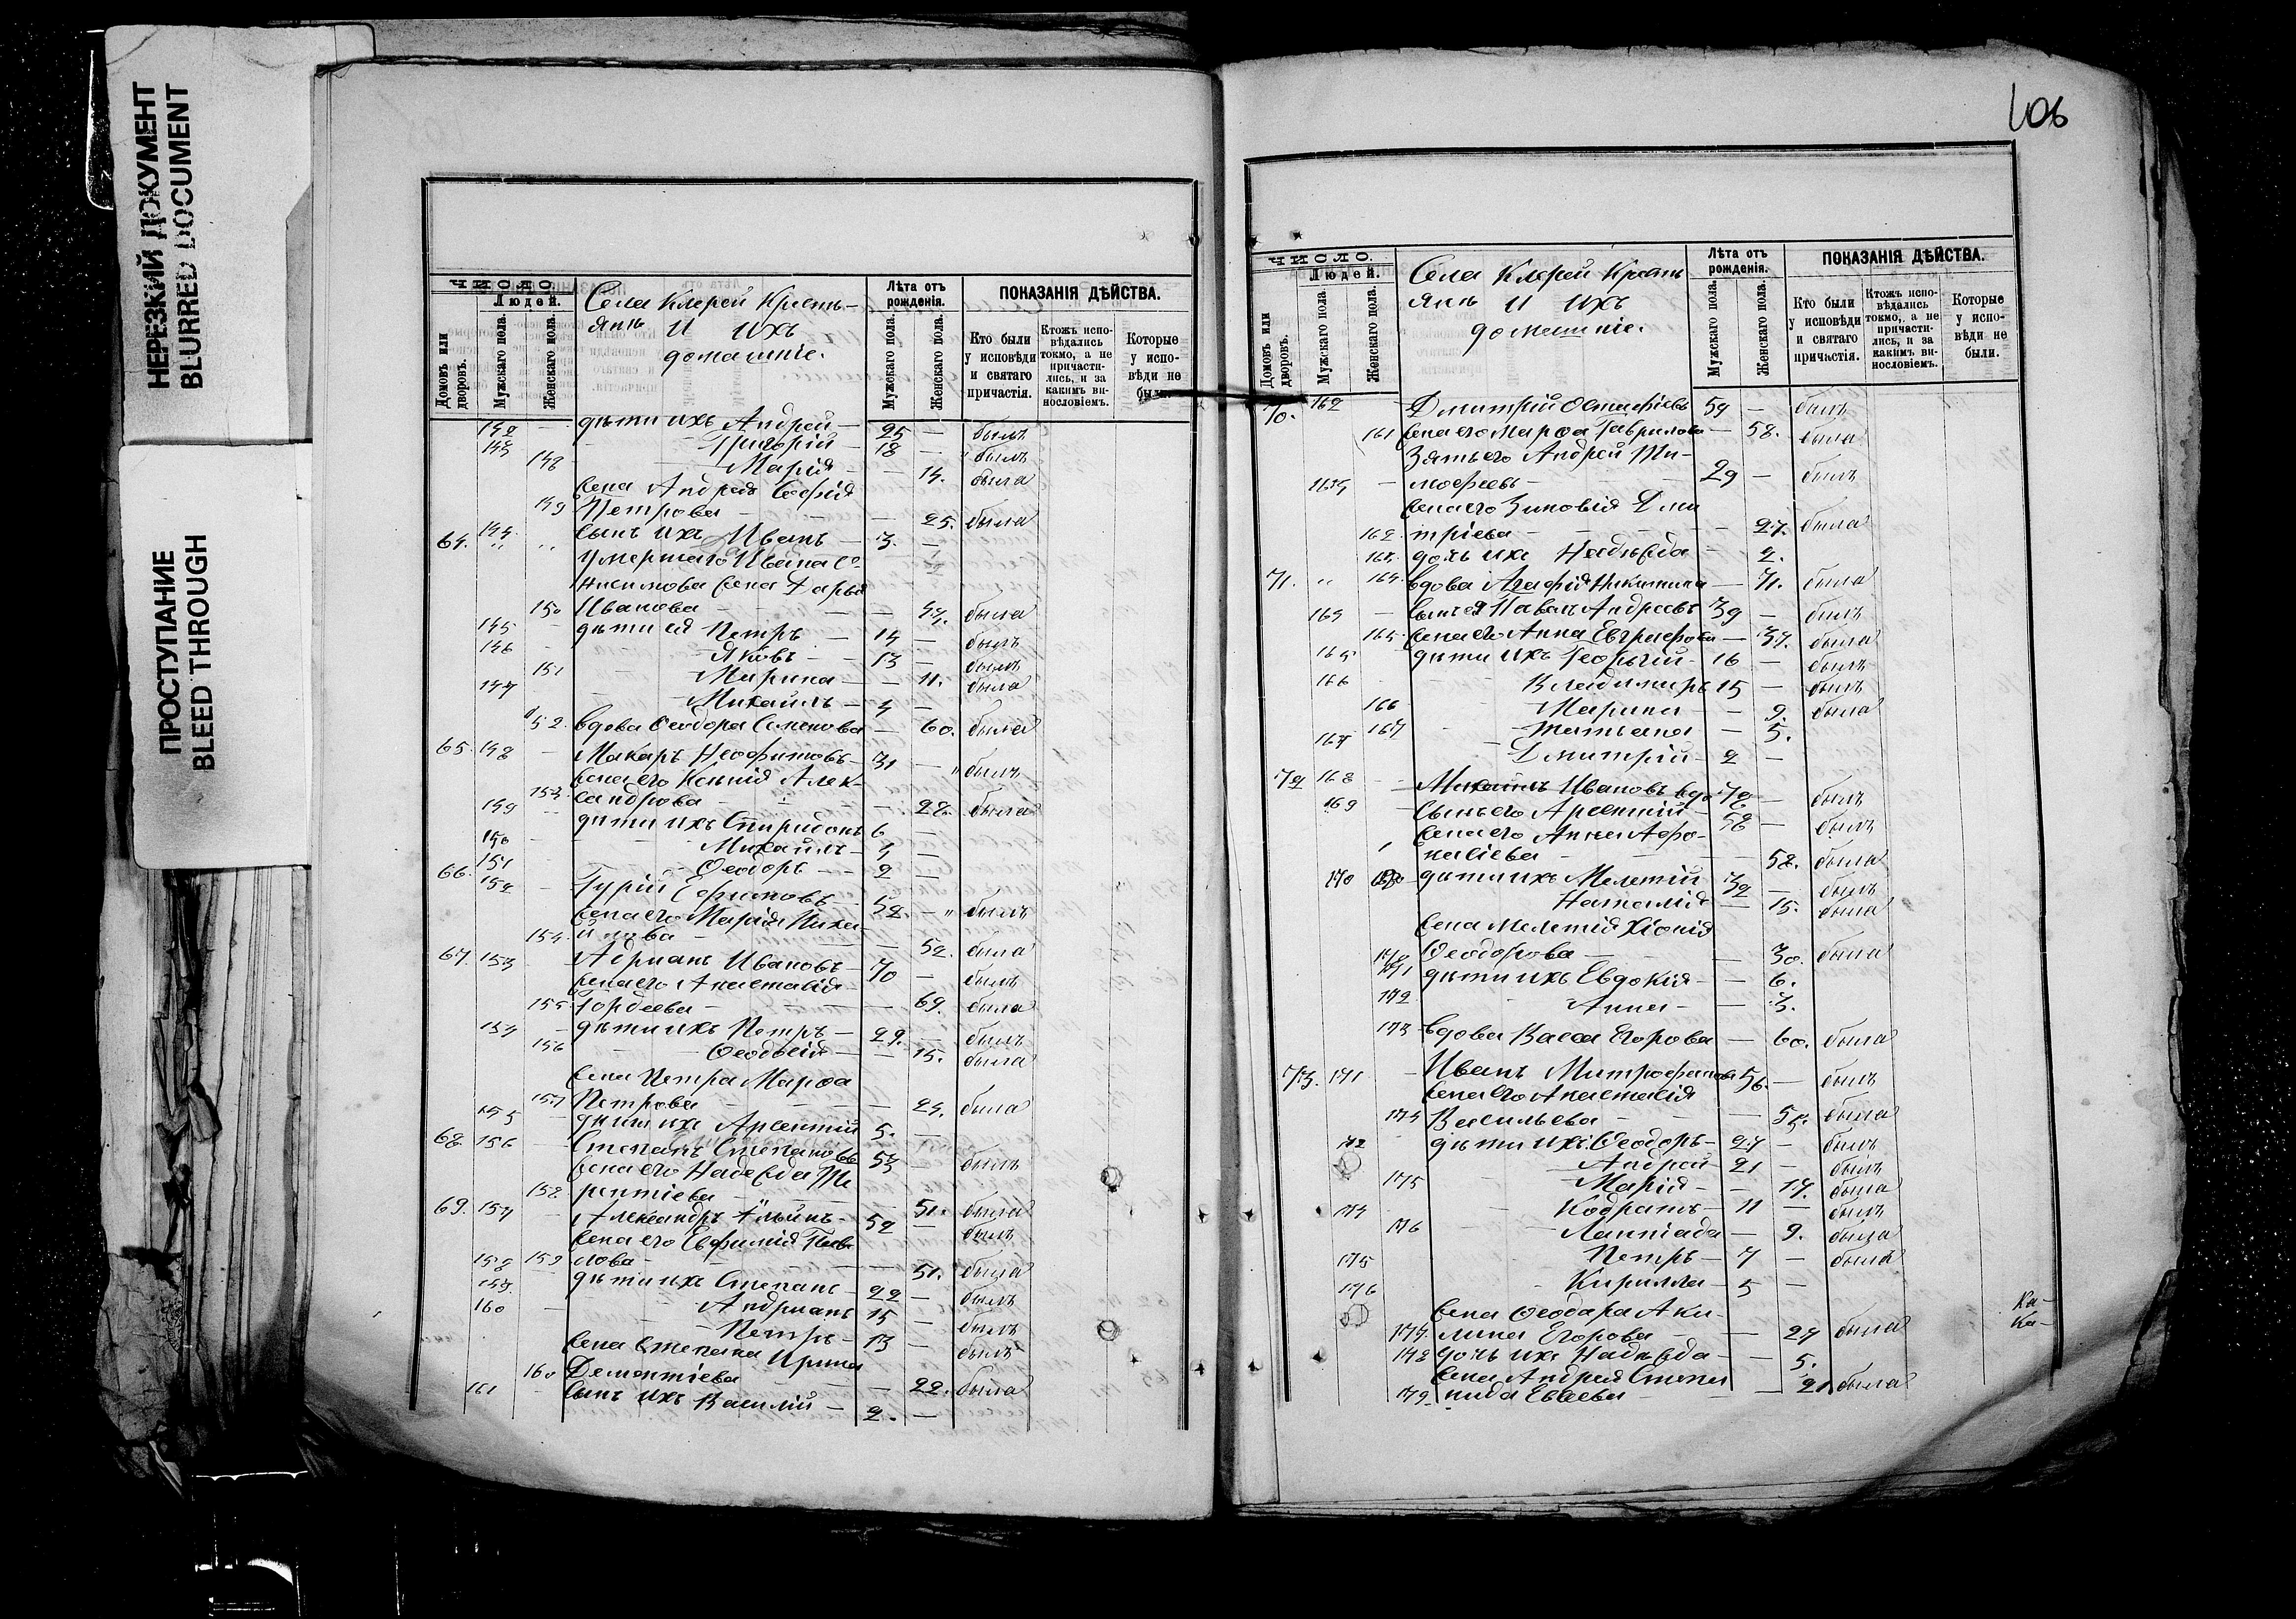 НЕРЕЗКИЙ ДОКУМЕНТ
BLURRED DOCUMENT
ПРОСТУПАНИЕ
BLEED THROUGH
ЧИСЛО
Людей.
Домовъ или дворовъ.
Мужскаго пола.
Женскаго пола.
Села Клерей Кресть-
янъ и ихъ
домашніе.
Лѣта отъ рожденія.
Мужскаго пола.
Женскаго пола.
ПОКАЗАНІЯ ДѢЙСТВА.
Кто были у исповѣди и святаго причастія.
Ктожъ исповѣдались токмо, а не причастились, и за какимъ винословіемъ.
Которые у исповѣди не были.
142 — дѣти ихъ Андрей — 25 — былъ
143 Григорій — 18 — былъ
148 Марія — — 14. была
жена Андрея Софія
149 Петрова — — 25. была
144 сынъ ихъ Иванъ — 3. —
64. " " Умершаго Ивана
жена Дарья
150 Ивановa — — 47. была
145 дѣти ея Петръ — 14 — былъ
146 Яковъ — 13 — былъ
151 Марина — — 11. была
147 Михаилъ — 4 —
152. вдова Ѳеодора Семенова — 60. была
65. 148 — Макаръ Неофитовъ — 31 — былъ
жена его Ксенія Алек-
153. сандрова — — 28. была
149 дѣти ихъ Спиридонъ 6 —
150 Михаилъ — 4 —
151 Ѳеодоръ — 2 —
66. 152 — Гурій Ефимовъ 52. — былъ
жена его Марія Миха-
154. йлова — — 52. была
67. 153 — Адріанъ Ивановъ — 70 — былъ
жена его Анастасія
155. Гордеева — — 69. была
154 — дѣти ихъ Петръ — 29. — былъ
156 Ѳеодосія — — 15. была
жена Петра Марѳа
157 Петрова — — 24. была
155 дѣти ихъ Арсентій 5. —
68. 156 — Степанъ Степановъ 53 — былъ
жена его Надежда Те
158 рентіева — 51. была
69. 157 — Александръ Ильинъ — 52 — былъ
жена его Евфимія Пав
159 лова — — 51. была
158 дѣти ихъ Степанъ — 22 — былъ
159. Андріанъ 15 — былъ
160 — Петръ — 13 — былъ
жена Степана Ирина
160 Дементіева — — 22. была
161 — сынъ ихъ Василій — 2. —
106
ЧИСЛО.
Людей.
Домовъ или дворовъ.
Мужскаго пола.
Женскаго пола.
Села Клерей Кресть
янъ и ихъ
домашніе.
Лѣта отъ рожденія.
Мужскаго пола.
Женскаго пола.
ПОКАЗАНІЯ ДѢЙСТВА.
Кто были у исповѣди и святаго причастія.
Ктожъ исповѣдались токмо, а не причастились, и за какимъ винословіемъ.
Которые у исповѣди не были.
70. 162 Дмитрій Евстафіевъ 59 — былъ
161 жена его Марѳа Гаврилова — 58. была
Зять его Андрей Ти-
163 — моѳеевъ — 29 — былъ
жена его Зиновія Дми
162. тріева — — 27. была
163. дочь ихъ Надежда — 2.
71. " 164. вдова Агафія Никитина — 71. была
164 — сынъ ея Павелъ Андреевъ 39 — былъ
165. жена его Анна Евграфова — 37. была
165 дѣти ихъ Георгій — 16 — былъ
166 Владимиръ 15 — былъ
166 Марина — — 9. была
167 Татьяна — 5.
167 Дмитрій — 2 —
72 168 — Михаилъ Ивановъ вдо 78 — былъ
169 — сынъ его Арсентій — 58 — былъ
жена его Анна Аѳа-
насіева — — 58. была
170 — дѣти ихъ Мелетій 32 — былъ
Наталія — 15. была
жена Мелетія Хіонія
170 Ѳеодорова — — 30. была
171 дѣти ихъ Евдокія — — 6.
172 Анна — — 3.
173 вдова Васса Егорова — 60. была
73. 171 — Иванъ Митрофановъ 56. — былъ
жена его Анастасія
174 Васильева — — 55. была
172 дѣти ихъ Ѳеодоръ — 27 — былъ
Андрей — 21 — былъ
175 Марія — — 17. была
174 Кодратъ — 11 — былъ
176 Лампіада — 9. была
175 Петръ — 7 — былъ
176 Кирилла — 5 —
жена Ѳеодора Аки-
177. лина Егорова — — 27 была
178 дочь ихъ Надежда — — 5.
жена Андрея Степа
179. нида Евсеева — — 21 была
Ка-
Ка-